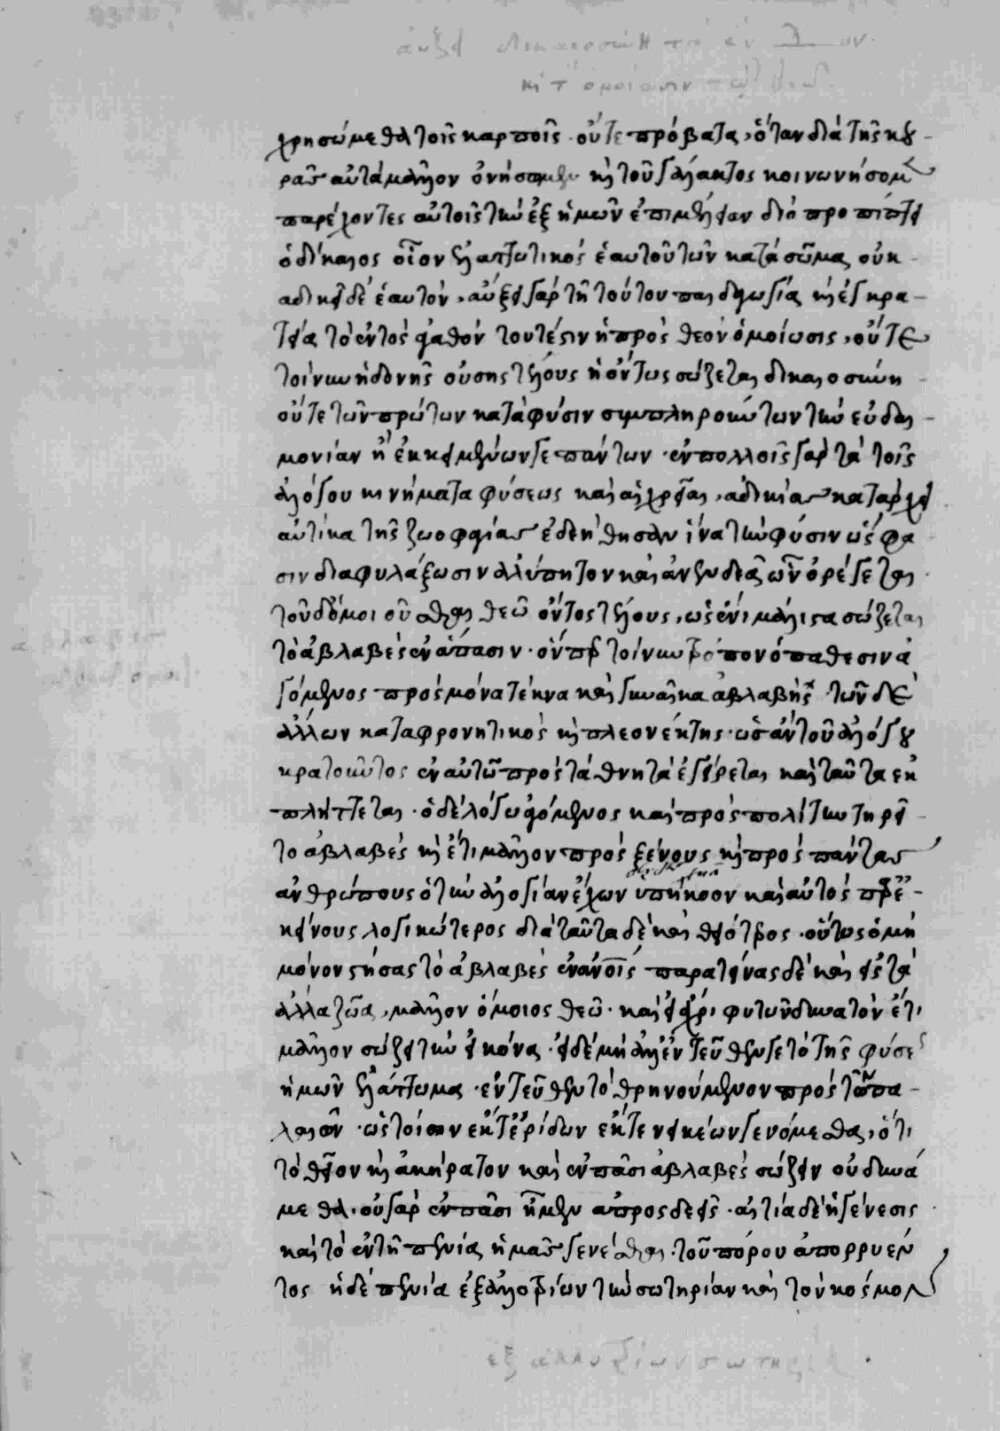 χρησώμεθα τοῖς καρποῖς· οὔτε πρόβατα, ὅταν διὰ τῆς κου
ρᾶς αὐτὰ μᾶλλον ὀνήσωμεν κὴ τοῦ γάλακτος κοινωνήσομεν
παρέχοντες αὐτοῖς τὴν ἐξ ἡμῶν ἐπιμέλειαν διὸ
ὁ δίκαιος οἷον ἐλαττωτικὸς ἑαυτοῦ τῶν κατὰ σῶμα, οὐκ
ἀδικεῖ δὲ ἑαυτόν, αὔξει γὰρ τῇ τούτου παιδαγωγίᾳ κὴ ἐγκρα
τείᾳ τὸ ἐντὸς ἀγαθόν τουτέστιν ἡ πρὸς θεὸν ὁμοίωσις, οὔτε
τοίνυν ἡδονῆς οὔσης τέλους ἡ ὄντως σώζεται δικαιοσύνη
οὔτε τῶν πρώτων κατὰ φύσιν συμπληρούντων τὴν εὐδαι
μονίαν ἢ ἐκκειμένων γε πάντων· ἐν πολλοῖς γὰρ τὰ τοῖς
ἀλόγου κινήματα φύσεως καὶ αἱ χρεῖαι, ἀδικίας κατάρχει
αὐτίκα τῆς ζωοφαγίας ἐδεήθησαν ἵνα τὴν φύσιν ὥς φα
σιν διαφυλάξωσιν ἀλύπητον καὶ ἀνενδεᾶ ὧν ὀρέγεται
τοῦ δὁμοιοῦσθαι θεῷ ὄντος τέλους, ὡς ἔνι μάλιστα σώζεται
τὸ ἀβλαβὲς ἐν ἅπασιν· ὅνπερ τοίνυν τρόπον ὁ πάθεσιν ἀ
γόμενος πρὸς μόνα τέκνα καὶ γυναῖκα ἀβλαβής, τῶν δὲ
ἄλλων καταφρονητικὸς κὴ πλεονέκτης· ὡς ἂν τοῦ ἀλόγου
κρατοῦντος ἐν αὐτῷ πρὸς τὰ θνητὰ ἐγείρεται καὶ ταῦτα ἐκ
πλήττεται· ὁ δὲ λόγῳ ἀγόμενος καὶ πρὸς πολίτην τηρεῖ
τὸ ἀβλαβὲς κὴ ἔτι μᾶλλον πρὸς ξένους κὴ πρὸς πάντας
ἀνθρώπους ὁ τὴν ἀλογίαν ἔχων ὑπήκοον καὶ αὐτὸς
κείνους λογικώτερος διὰ ταῦτα δὲ καὶ θειότερος· οὕτως ὁ μὴ
μόνον στήσας τὸ ἀβλαβὲς ἐν ἀνοις παρατείνας δὲ καὶ εἰς τὰ
ἄλλα ζῷα, μᾶλλον ὅμοιος θεῷ· καὶ εἰ μέχρι φυτῶν δυνατὸν ἔτι
μᾶλλον σώζει τὴν εἰκόνα· εἰ δὲ μὴ ἀλλ ἐντεῦθεν γε τὸ τῆς φύσεως
ἡμῶν ἐλάττωμα· ἐντεῦθεν τὸ θρηνούμενον πρὸς τῶν πα
λαιῶν· ὡς τοίων ἐκ τ ἐρίδων ἔκ τε νεικέων γενόμεθα, ὅτι
τὸ θεῖον κὴ ἀκήρατον καὶ ἐν πᾶσι ἀβλαβὲς σώζειν οὐ δυνά
μεθα· οὐ γὰρ ἐν πᾶσι ἦμεν ἀπροσδεεῖς· αἰτία δὲ ἡ γένεσις
καὶ τὸ ἐν τῇ πενίᾳ ἡμᾶς γενέσθαι, τοῦ πόρου ἀπορρυέν
τος ἡ δὲ πενία ἐξ ἀλλοτρίων τὴν σωτηρίαν καὶ τὸν κόσμον